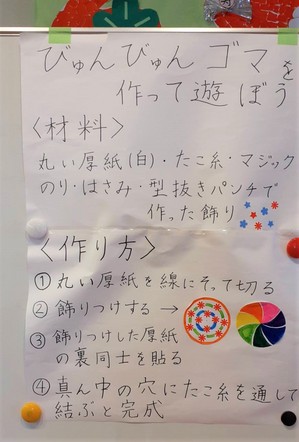 びゅんびゅんゴマを
作って遊ぼう
〈材料〉
丸い厚紙(白)・たこ糸・マジック
のり・はさみ・型抜きパンチで
作った飾り
〈作り方〉
①丸い厚紙を線にそって切る
②飾りつけする→
③飾りつけした厚紙
の裏同士を貼る
④真ん中の穴にたこ糸を通して
結ぶと完成